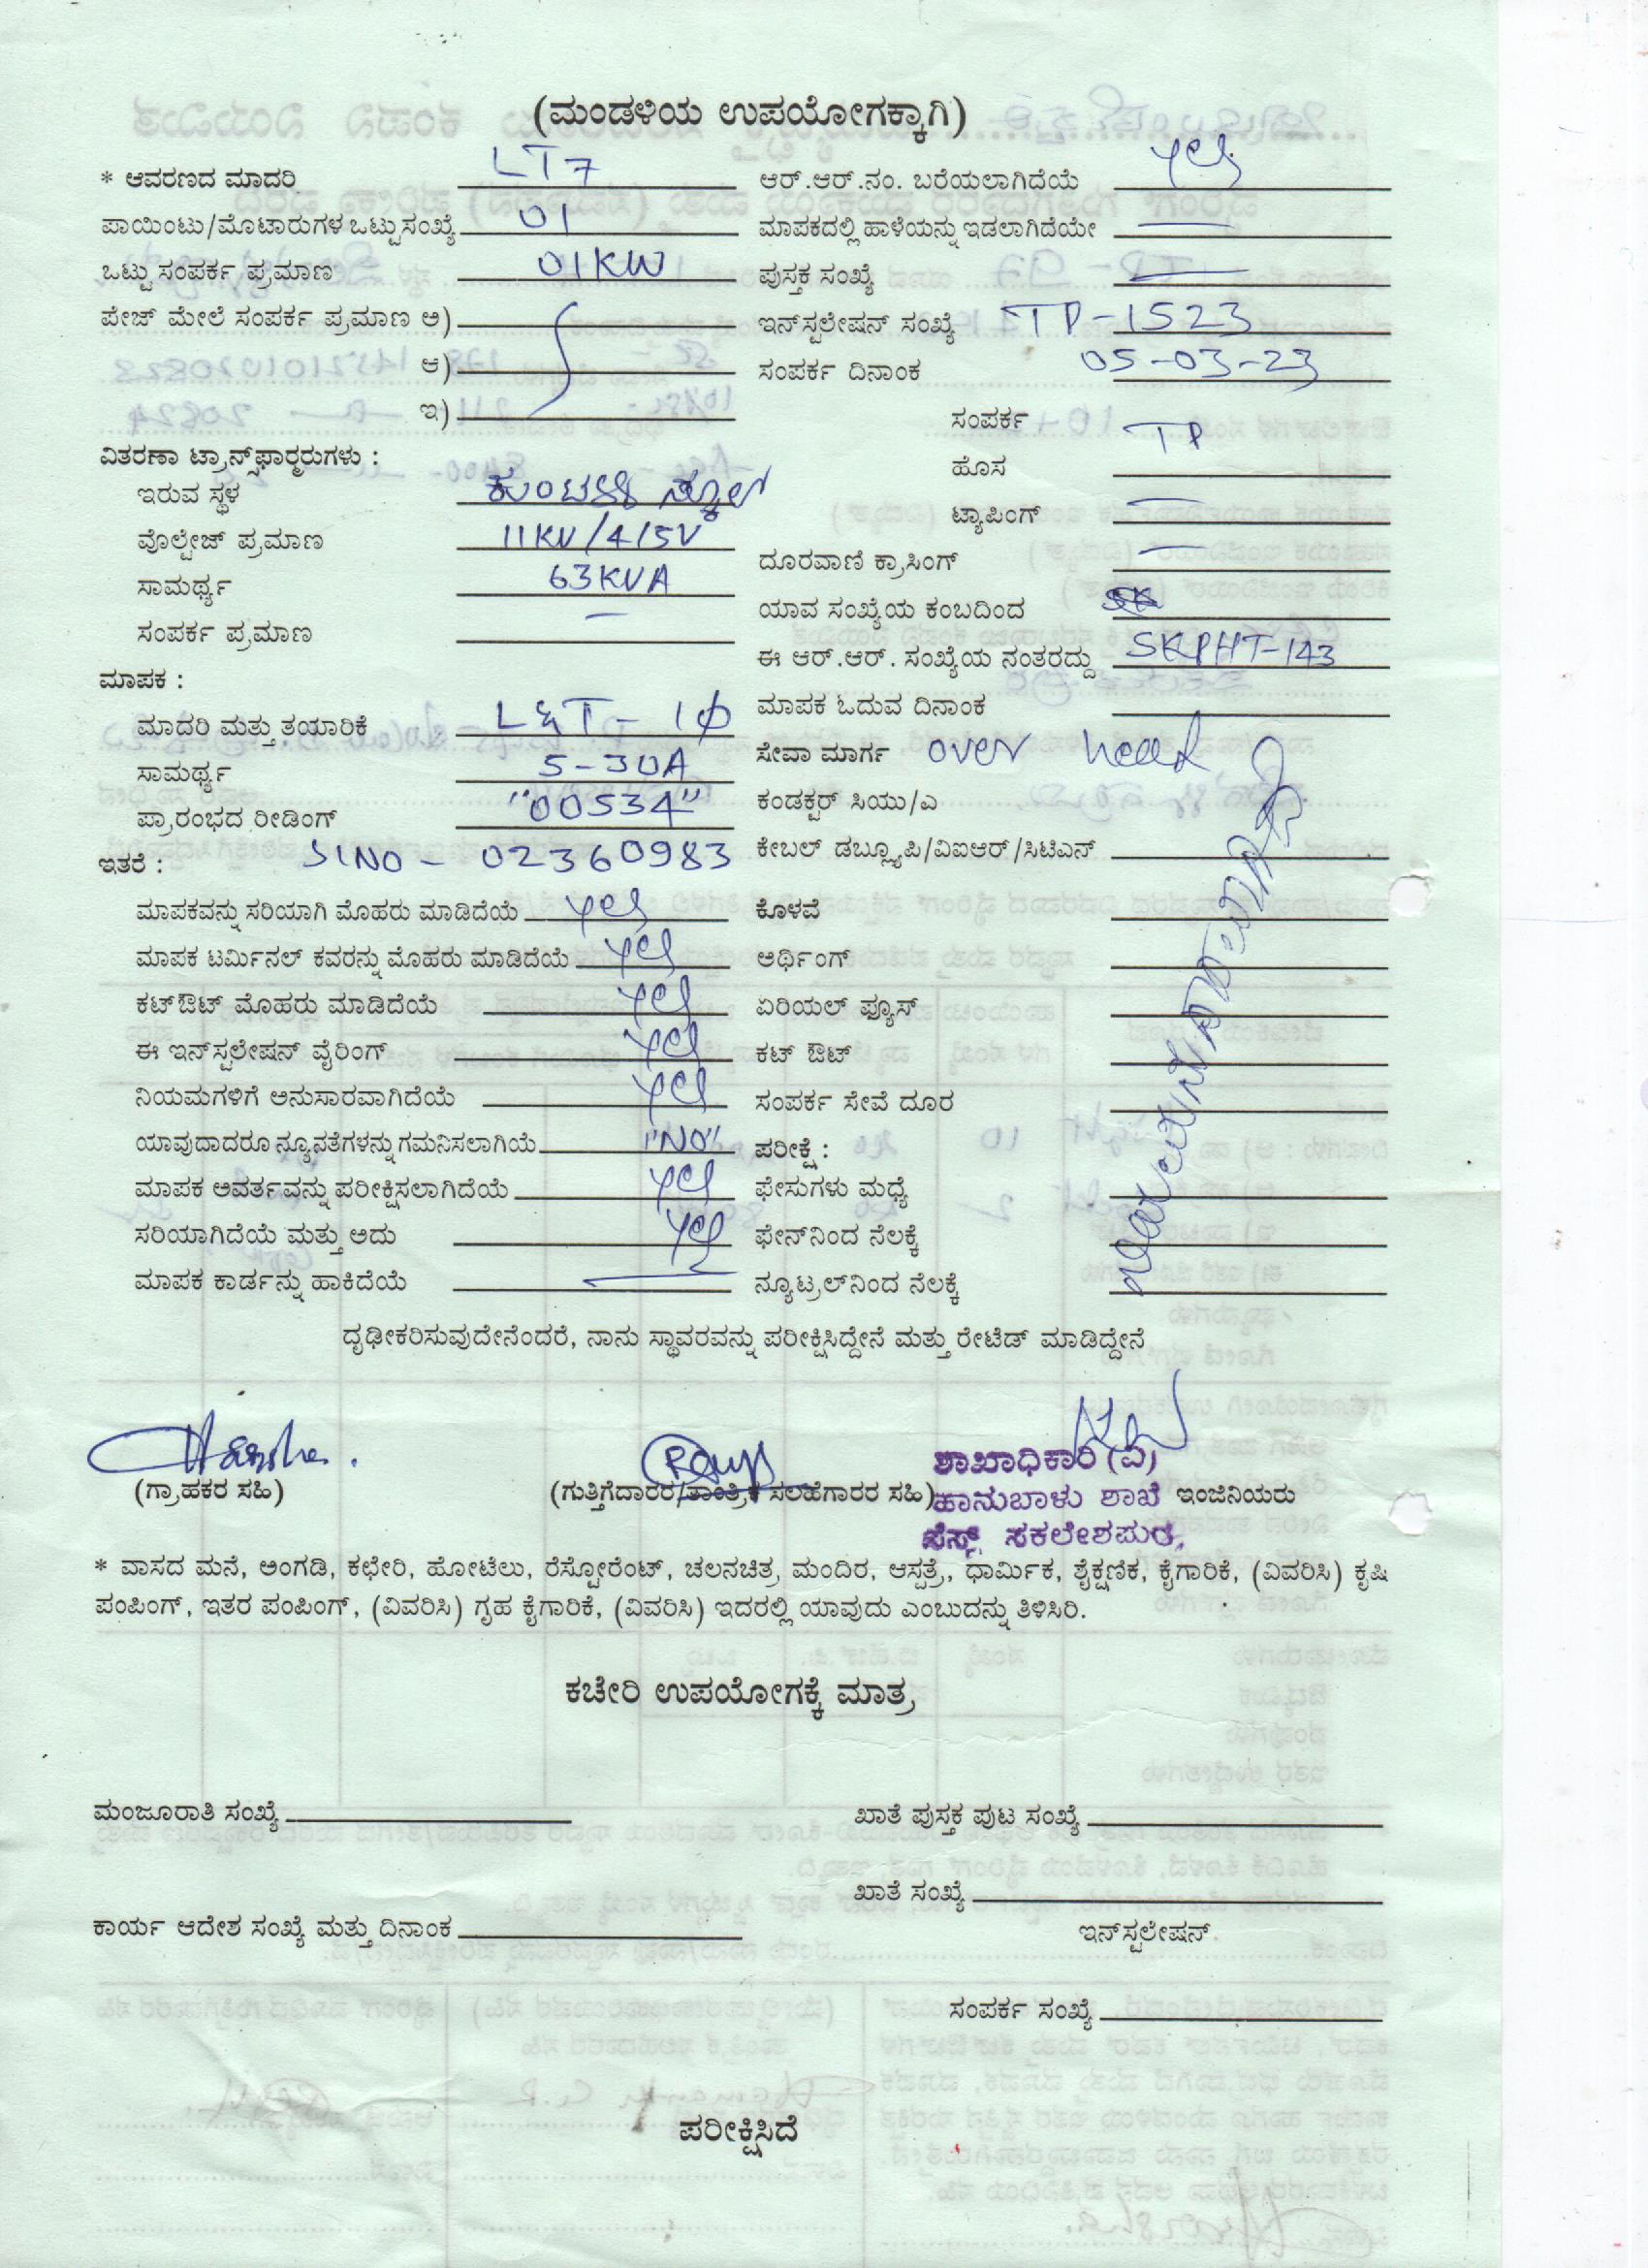 (ಮಂಡಳಿಯ ಉಪಯೋಗಕ್ಕಾಗಿ)
* ಆವರಣದ ಮಾದರಿ LT7
ಪಾಯಿಂಟು/ಮೊಟಾರುಗಳ ಒಟ್ಟುಸಂಖ್ಯೆ 01
ಒಟ್ಟು ಸಂಪರ್ಕ ಪ್ರಮಾಣ 01KW
ಪೇಜ್ ಮೇಲೆ ಸಂಪರ್ಕ ಪ್ರಮಾಣ ಅ)
ಆ)
ಇ)
ವಿತರಣಾ ಟ್ರಾನ್ಸ್‌ಫಾರ್‍ಮರುಗಳು :
ಇರುವ ಸ್ಥಳ
ವೊಲ್ಟೇಜ್ ಪ್ರಮಾಣ 11KV/415V
ಸಾಮರ್ಥ್ಯ 63KVA
ಸಂಪರ್ಕ ಪ್ರಮಾಣ —
ಮಾಪಕ :
ಮಾದರಿ ಮತ್ತು ತಯಾರಿಕೆ L&T - 1ϕ
ಸಾಮರ್ಥ್ಯ 5-30A
ಪ್ರಾರಂಭದ ರೀಡಿಂಗ್ "00534"
ಇತರೆ : SlNO - 02360983
ಮಾಪಕವನ್ನು ಸರಿಯಾಗಿ ಮೊಹರು ಮಾಡಿದೆಯೆ yes
ಮಾಪಕ ಟರ್ಮಿನಲ್ ಕವರನ್ನು ಮೊಹರು ಮಾಡಿದೆಯೆ yes
ಕಟ್‌ಔಟ್ ಮೊಹರು ಮಾಡಿದೆಯೆ yes
ಈ ಇನ್‌ಸ್ಟಲೇಷನ್ ವೈರಿಂಗ್ yes
ನಿಯಮಗಳಿಗೆ ಅನುಸಾರವಾಗಿದೆಯೆ yes
ಯಾವುದಾದರೂ ನ್ಯೂನತೆಗಳನ್ನು ಗಮನಿಸಲಾಗಿಯೆ "NO"
ಮಾಪಕ ಅವರ್ತವನ್ನು ಪರೀಕ್ಷಿಸಲಾಗಿದೆಯೆ yes
ಸರಿಯಾಗಿದೆಯೆ ಮತ್ತು ಅದು yes
ಮಾಪಕ ಕಾರ್ಡನ್ನು ಹಾಕಿದೆಯೆ —
ಆರ್.ಆರ್.ನಂ. ಬರೆಯಲಾಗಿದೆಯೆ yes
ಮಾಪಕದಲ್ಲಿ ಹಾಳೆಯನ್ನು ಇಡಲಾಗಿದೆಯೇ —
ಪುಸ್ತಕ ಸಂಖ್ಯೆ —
ಇನ್‌ಸ್ಟಲೇಷನ್ ಸಂಖ್ಯೆ TP-1523
ಸಂಪರ್ಕ ದಿನಾಂಕ 05-03-23
ಸಂಪರ್ಕ TP
ಹೊಸ
ಟ್ಯಾಪಿಂಗ್ —
ದೂರವಾಣಿ ಕ್ರಾಸಿಂಗ್ —
ಯಾವ ಸಂಖ್ಯೆಯ ಕಂಬದಿಂದ
ಈ ಆರ್.ಆರ್. ಸಂಖ್ಯೆಯ ನಂತರದ್ದು SKPHT-143
ಮಾಪಕ ಓದುವ ದಿನಾಂಕ
ಸೇವಾ ಮಾರ್ಗ over head
ಕಂಡಕ್ಟರ್ ಸಿಯು/ಎ
ಕೇಬಲ್ ಡಬ್ಲ್ಯೂಪಿ/ವಿಐಆರ್/ಸಿಟಿಎನ್
ಕೊಳವೆ
ಅರ್ಥಿಂಗ್
ಏರಿಯಲ್ ಫ್ಯೂಸ್
ಕಟ್ ಔಟ್
ಸಂಪರ್ಕ ಸೇವೆ ದೂರ
ಪರೀಕ್ಷೆ :
ಫೇಸುಗಳು ಮಧ್ಯೆ
ಫೇನ್‌ನಿಂದ ನೆಲಕ್ಕೆ
ನ್ಯೂಟ್ರಲ್‌ನಿಂದ ನೆಲಕ್ಕೆ
ದೃಢೀಕರಿಸುವುದೇನೆಂದರೆ, ನಾನು ಸ್ಥಾವರವನ್ನು ಪರೀಕ್ಷಿಸಿದ್ದೇನೆ ಮತ್ತು ರೇಟೆಡ್ ಮಾಡಿದ್ದೇನೆ
(ಗ್ರಾಹಕರ ಸಹಿ)
(ಗುತ್ತಿಗೆದಾರರ/ತಾಂತ್ರಿಕ ಸಲಹೆಗಾರರ ಸಹಿ)
ಶಾಖಾಧಿಕಾರಿ (ವಿ)
ಹಾನುಬಾಳು ಶಾಖೆ ಇಂಜಿನಿಯರು
ಸೆಸ್ಕ್ ಸಕಲೇಶಪುರ.
* ವಾಸದ ಮನೆ, ಅಂಗಡಿ, ಕಛೇರಿ, ಹೋಟೆಲು, ರೆಸ್ಟೋರೆಂಟ್, ಚಲನಚಿತ್ರ ಮಂದಿರ, ಆಸ್ಪತ್ರೆ, ಧಾರ್ಮಿಕ, ಶೈಕ್ಷಣಿಕ, ಕೈಗಾರಿಕೆ, (ವಿವರಿಸಿ) ಕೃಷಿ
ಪಂಪಿಂಗ್, ಇತರ ಪಂಪಿಂಗ್, (ವಿವರಿಸಿ) ಗೃಹ ಕೈಗಾರಿಕೆ, (ವಿವರಿಸಿ) ಇದರಲ್ಲಿ ಯಾವುದು ಎಂಬುದನ್ನು ತಿಳಿಸಿರಿ.
ಕಚೇರಿ ಉಪಯೋಗಕ್ಕೆ ಮಾತ್ರ
ಮಂಜೂರಾತಿ ಸಂಖ್ಯೆ
ಖಾತೆ ಪುಸ್ತಕ ಪುಟ ಸಂಖ್ಯೆ
ಖಾತೆ ಸಂಖ್ಯೆ
ಕಾರ್ಯ ಆದೇಶ ಸಂಖ್ಯೆ ಮತ್ತು ದಿನಾಂಕ
ಇನ್‌ಸ್ಟಲೇಷನ್
ಸಂಪರ್ಕ ಸಂಖ್ಯೆ
ಪರೀಕ್ಷಿಸಿದೆ